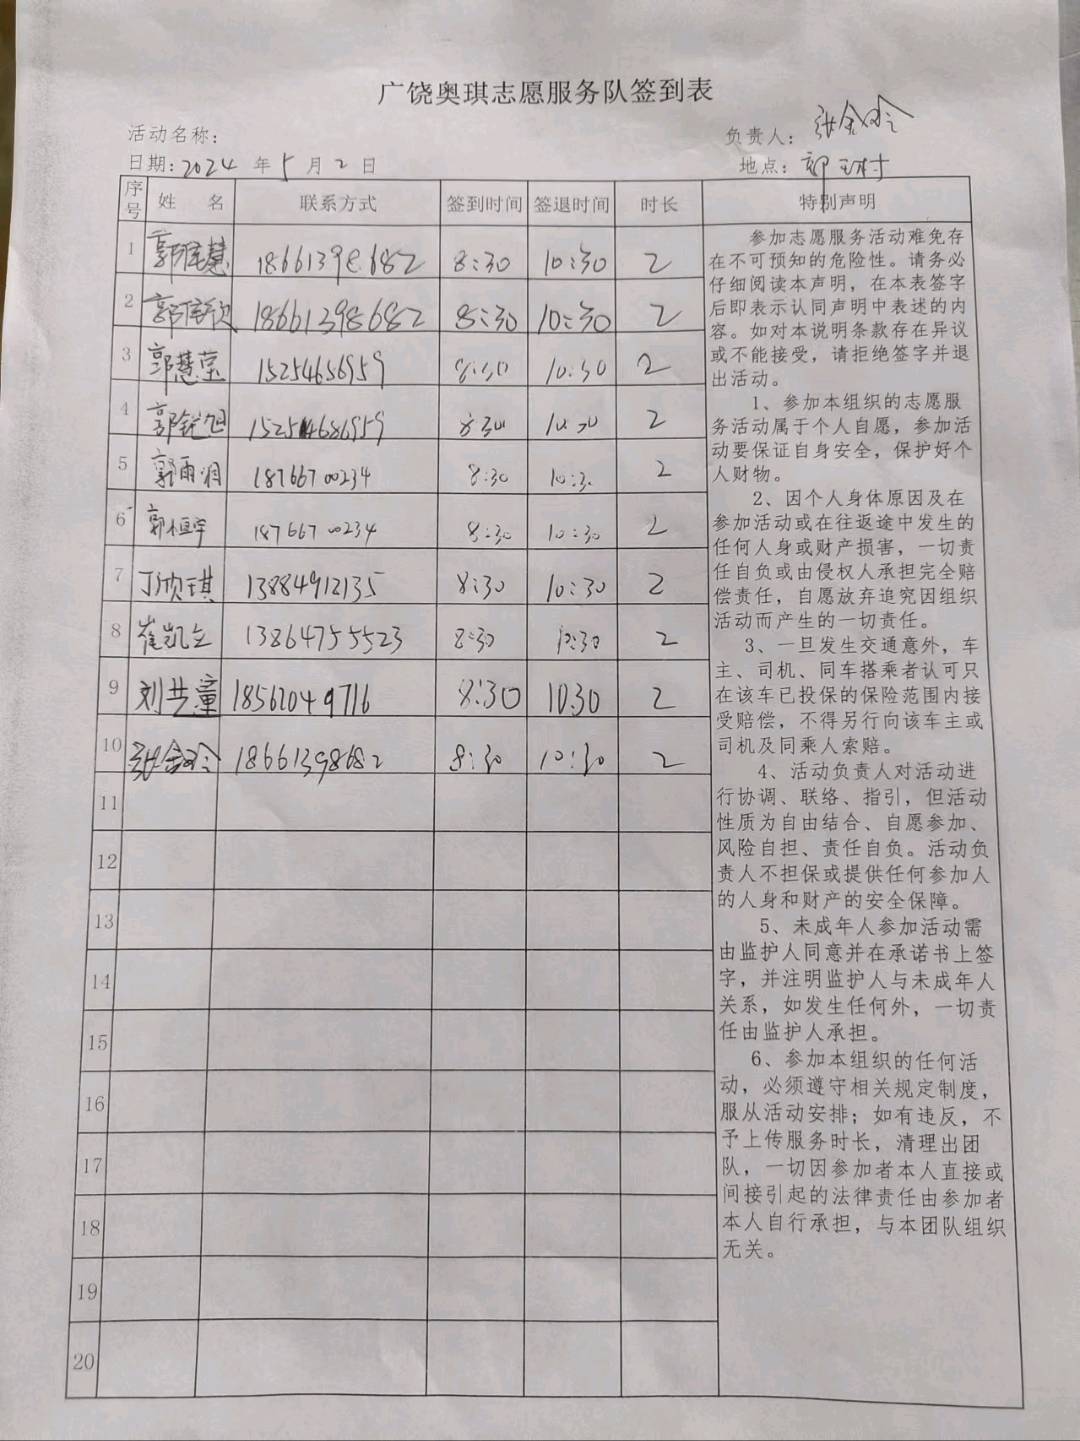 广饶奥琪志愿服务队签到表
活动名称：
负责人：张金玲
日期：2024 年 5 月 2 日
地点：郭王村
序号 姓 名 联系方式 签到时间 签退时间 时长 特别声明
1 郭 慧 18661398682 8:30 10:30 2
2 郭 欣 18661398682 8:30 10:30 2
3 郭慧莹 15254656959 8:30 10:30 2
4 郭锐旭 15254686959 8:30 10:30 2
5 郭雨润 18766700234 8:30 10:30 2
6 郭恒宇 18766700234 8:30 10:30 2
7 丁欣琪 13884912135 8:30 10:30 2
8 崔凯立 13864755523 8:30 10:30 2
9 刘芸潼 18562049716 8:30 10:30 2
10 张金玲 18661398682 8:30 10:30 2
11
12
13
14
15
16
17
18
19
20
参加志愿服务活动难免存
在不可预知的危险性。请务必
仔细阅读本声明，在本表签字
后即表示认同声明中表述的内
容。如对本说明条款存在异议
或不能接受，请拒绝签字并退
出活动。
1、参加本组织的志愿服
务活动属于个人自愿，参加活
动要保证自身安全，保护好个
人财物。
2、因个人身体原因及在
参加活动或在往返途中发生的
任何人身或财产损害，一切责
任自负或由侵权人承担完全赔
偿责任，自愿放弃追究因组织
活动而产生的一切责任。
3、一旦发生交通意外，车
主、司机、同车搭乘者认可只
在该车已投保的保险范围内接
受赔偿，不得另行向该车主或
司机及同乘人索赔。
4、活动负责人对活动进
行协调、联络、指引，但活动
性质为自由结合、自愿参加、
风险自担、责任自负。活动负
责人不担保或提供任何参加人
的人身和财产的安全保障。
5、未成年人参加活动需
由监护人同意并在承诺书上签
字，并注明监护人与未成年人
关系，如发生任何外，一切责
任由监护人承担。
6、参加本组织的任何活
动，必须遵守相关规定制度，
服从活动安排；如有违反，不
予上传服务时长，清理出团
队，一切因参加者本人直接或
间接引起的法律责任由参加者
本人自行承担，与本团队组织
无关。